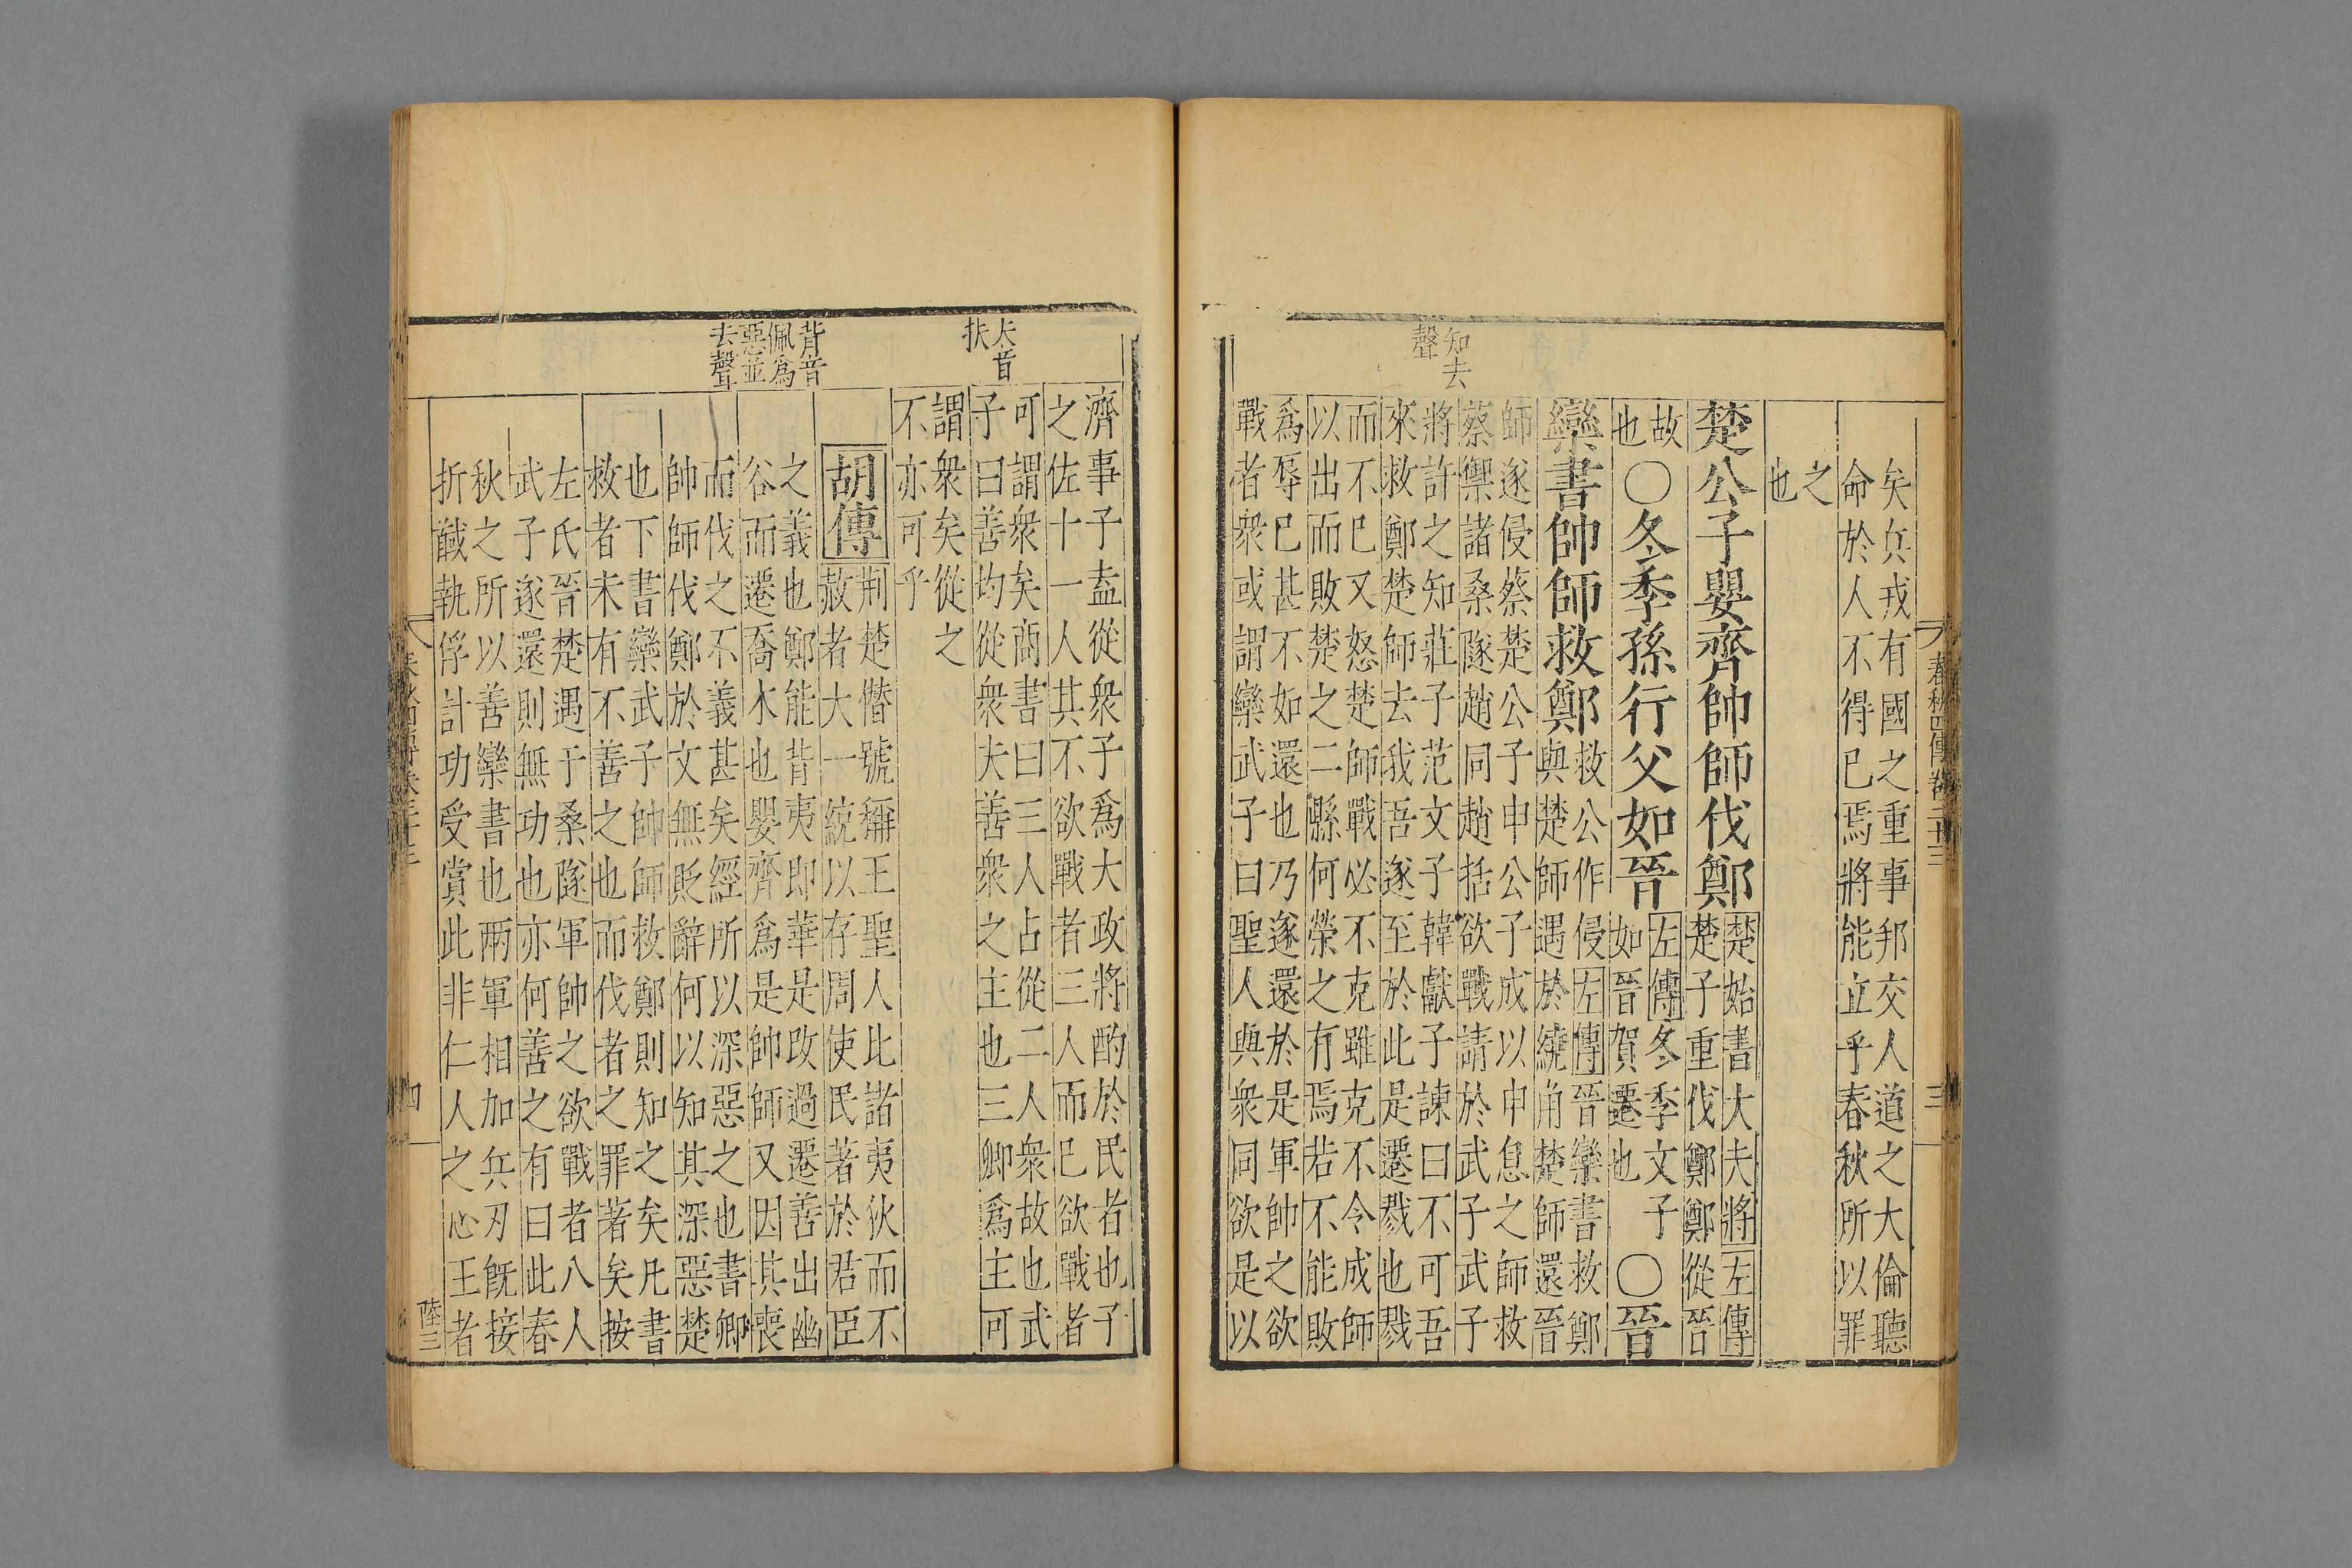 春秋四傳卷二十三
三
矣兵戎有國之重事邦交人道之大倫聽
命於人不得已焉將能立乎春秋所以罪
之
也
楚公子嬰齊帥師伐鄭
楚始書大夫將左傳
楚子重伐鄭鄭從晉
故
也
○冬季孫行父如晉
左傳冬季文子
如晉賀遷也
○晉
欒書帥師救鄭
救公作侵左傳晉欒書救鄭
與楚師遇於繞角楚師還晉
師遂侵蔡楚公子申公子成以申息之師救
蔡禦諸桑隧趙同趙括欲戰請於武子武子
將許之知莊子范文子韓獻子諫曰不可吾
來救鄭楚師去我吾遂至於此是遷戮也戮
而不已又怒楚師戰必不克雖克不令成師
以出而敗楚之二縣何榮之有焉若不能敗
爲辱已甚不如還也乃遂還於是軍帥之欲
戰者衆或謂欒武子曰聖人與衆同欲是以
知去
聲
濟事子盍從衆子爲大政將酌於民者也子
之佐十一人其不欲戰者三人而已欲戰者
可謂衆矣商書曰三人占從二人衆故也武
子曰善均從衆夫善衆之主也三卿爲主可
謂衆矣從之
不亦可乎
夫音
扶
胡傳
荆楚僭號稱王聖人比諸夷狄而不
赦者大一統以存周使民著於君臣
之義也鄭能背夷即華是改過遷善出幽
谷而遷喬木也嬰齊爲是帥師又因其喪
而伐之不義甚矣經所以深惡之也書卿
帥師伐鄭於文無貶辭何以知其深惡楚
也下書欒武子帥師救鄭則知之矣凡書
救者未有不善之也而伐者之罪著矣按
左氏晉楚遇于桑隧軍帥之欲戰者八人
武子遂還則無功也亦何善之有曰此春
秋之所以善欒書也兩軍相加兵刃旣接
折馘執俘計功受賞此非仁人之心王者
背音
佩爲
惡並
去聲
四
陸三